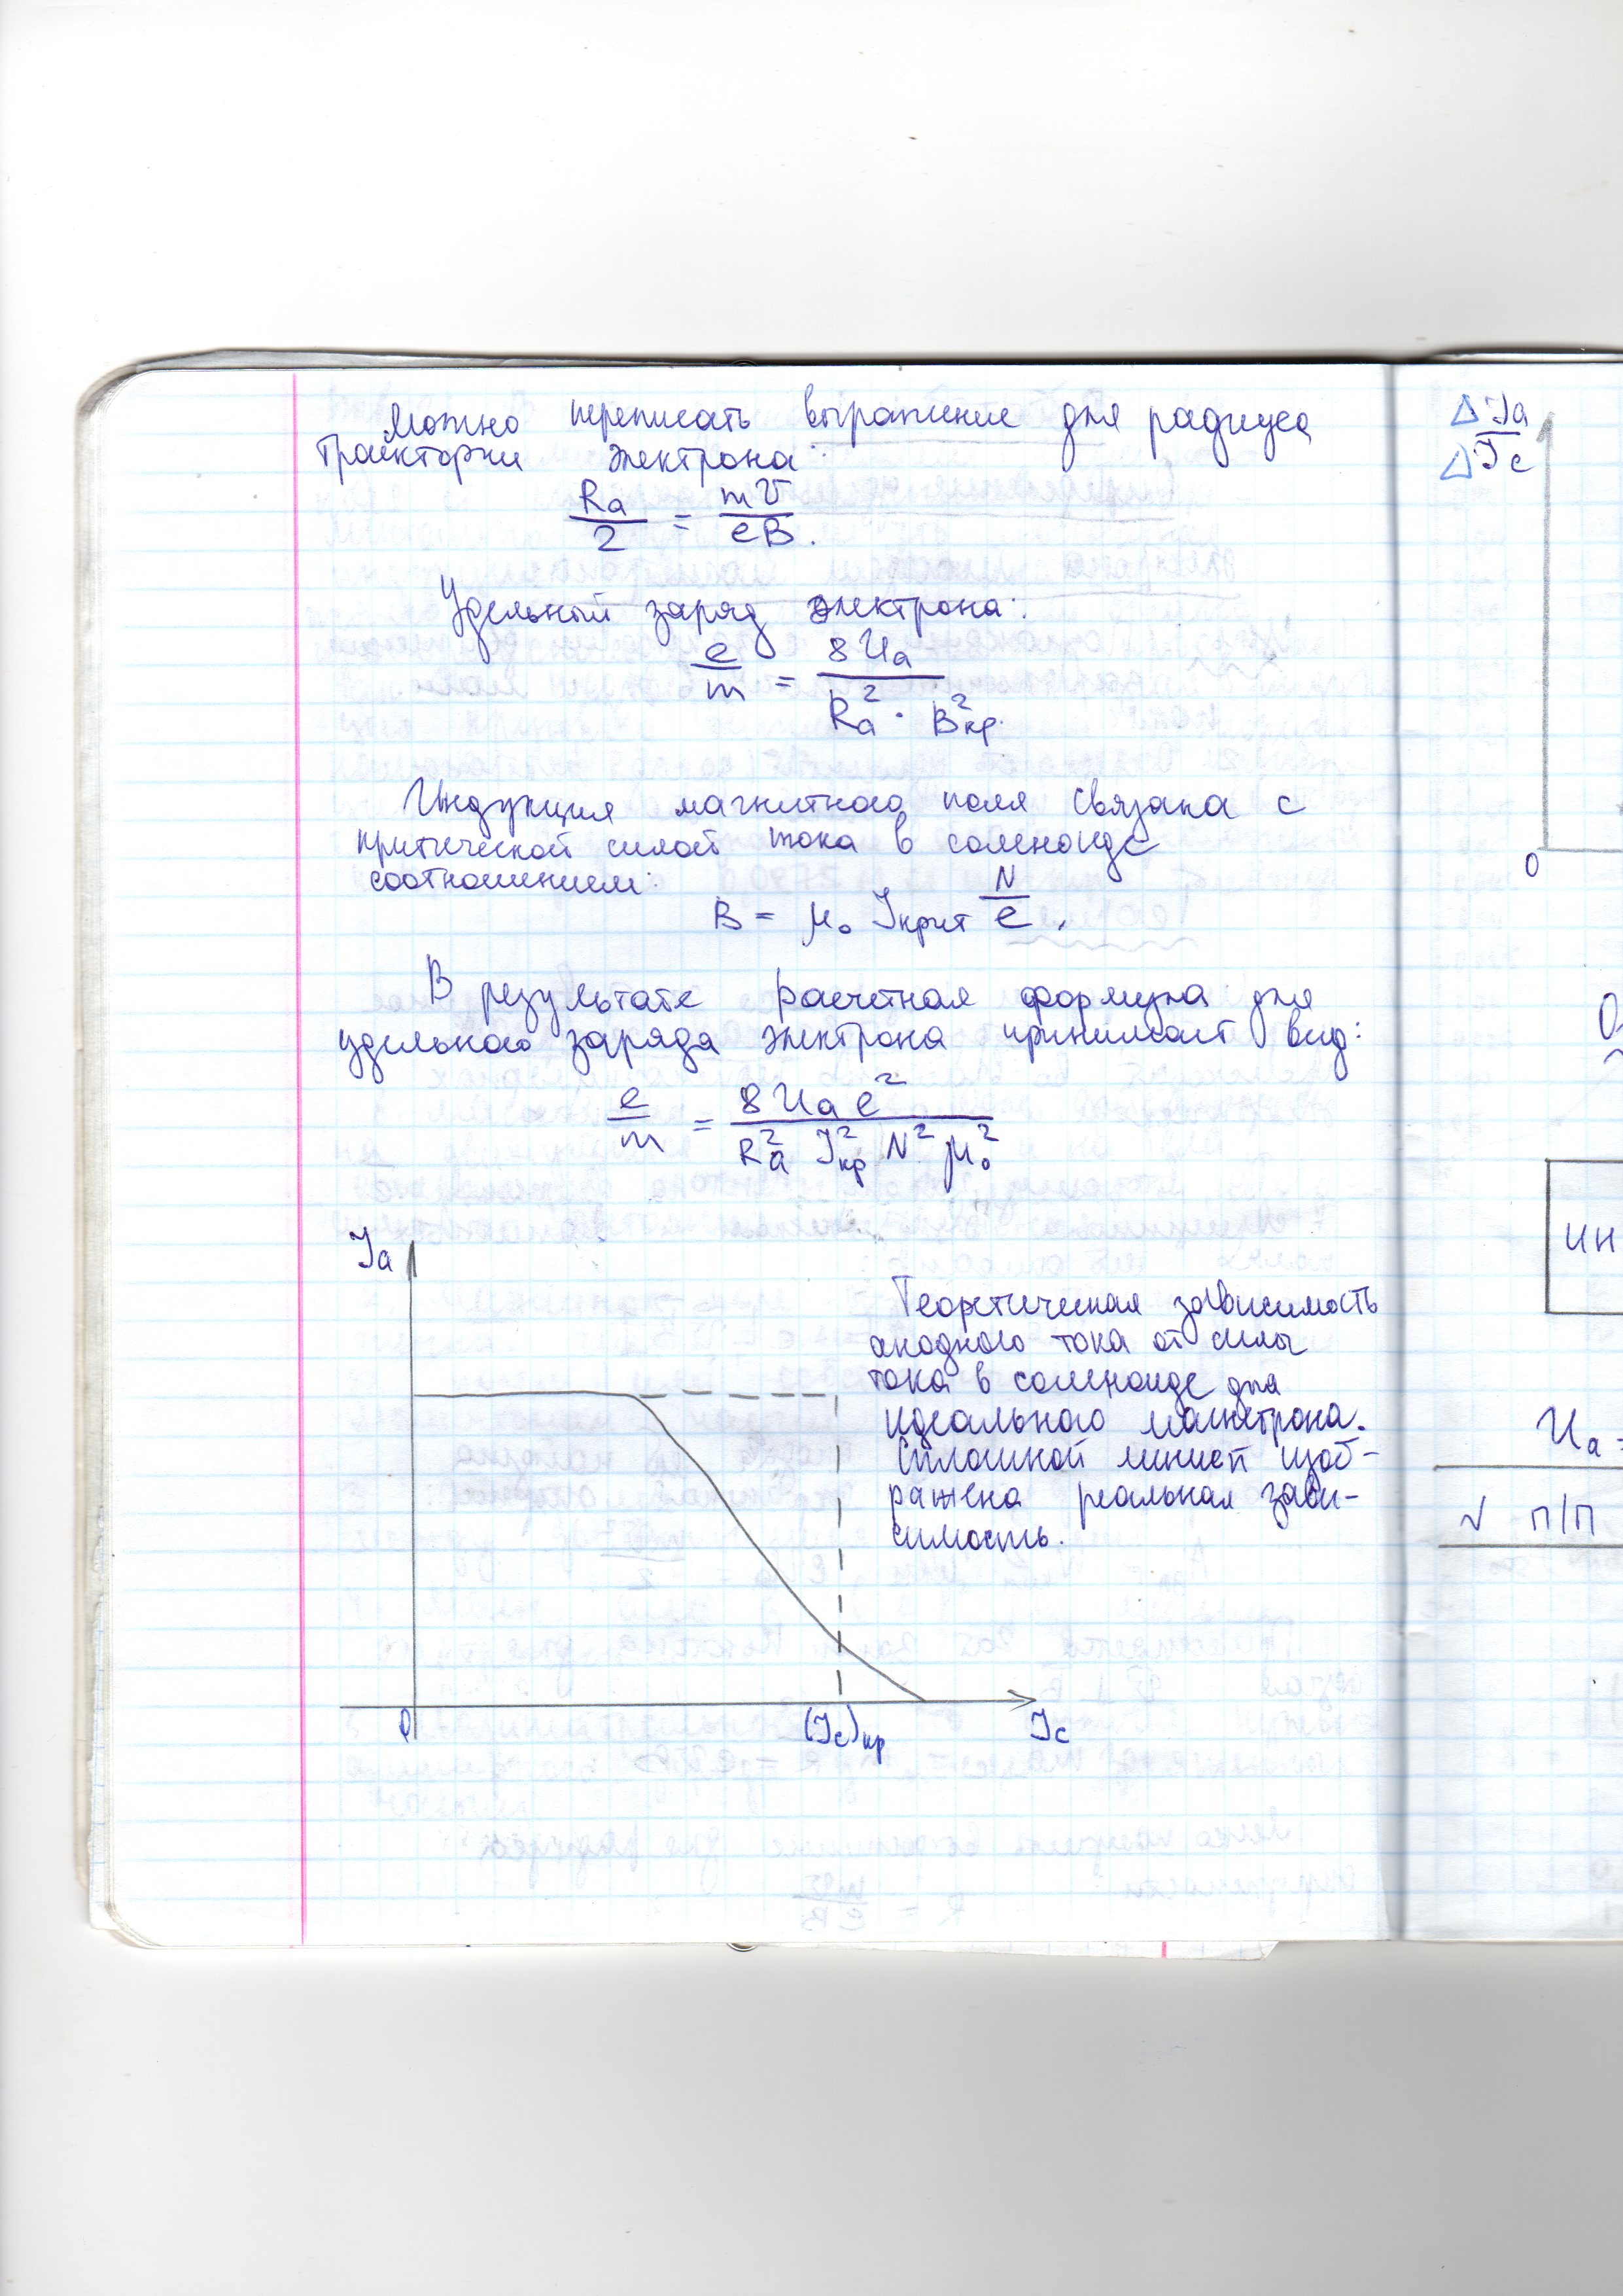 Можно переписать выражение для радиуса
траектории электрона:
Ra/2 = mv/eB.
Удельный заряд электрона:
e/m = 8Ua/(Ra² · Bкр²)
Индукция магнитного поля связана с
критической силой тока в соленоиде
соотношением:
B = μ₀ Iкрит N/l.
В результате расчетная формула для
удельного заряда электрона принимает вид:
e/m = 8Ua l²/(Ra² Iкр² N² μ₀²)
Ia
Теоретическая зависимость
анодного тока от силы
тока в соленоиде для
идеального магнетрона.
Сплошной линией изоб-
ражена реальная зави-
симость.
0
(Ic)кр
Ic
ΔIa/ΔIc
0
ин
Ua =
√ п/п